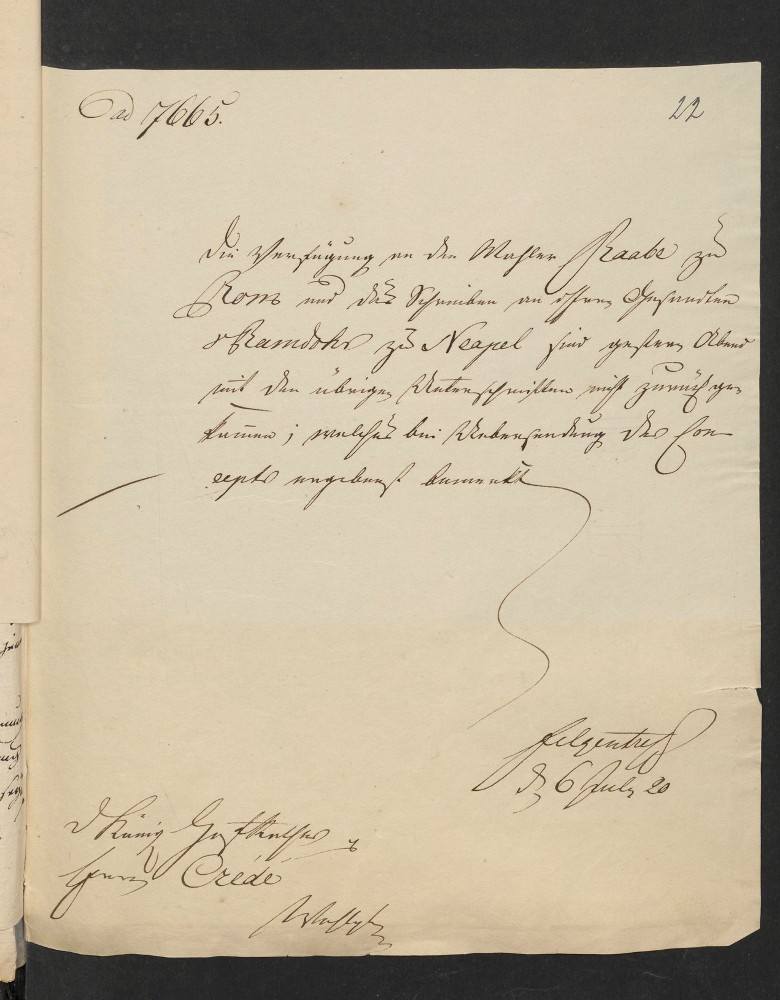 ad 7665.
22
Die Verfügung an den Mahler Raabe zu
Rom und das Schreiben an Herrn Gesandten
v Ramdohr zu Neapel sind gestern Abend
mit den übrigen Unterschriften nicht zurückge-
kommen; welches bei Uebersendung des Con-
cepts ergebenst bemerkt
Felgentreff
d 6 July 20
d König Hofrath
Herrn Crédé